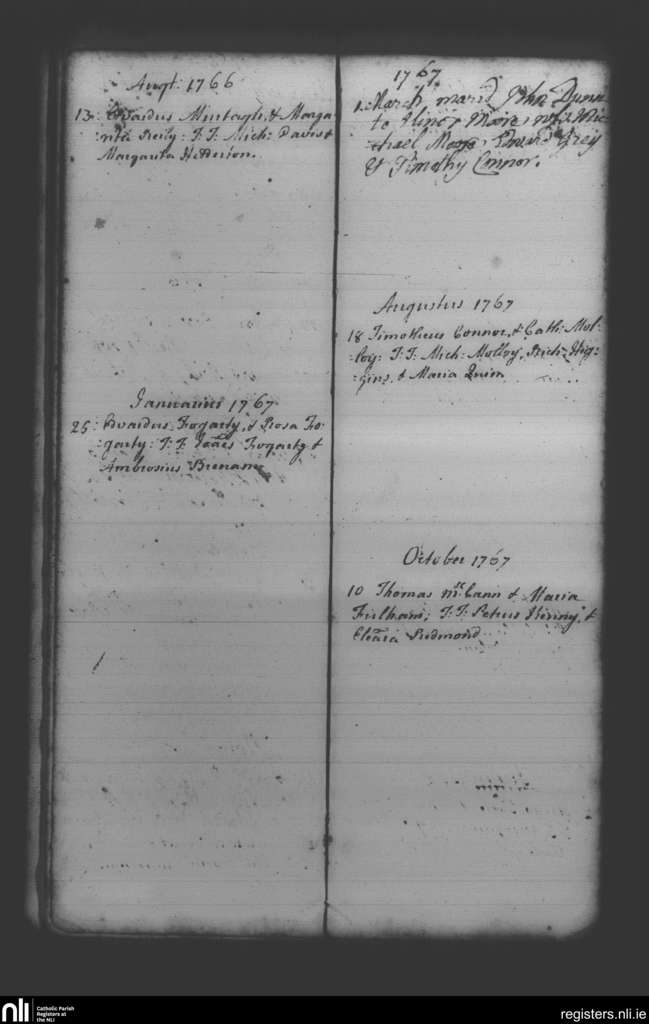 Augt. 1766
13. Edvardus Murtagh, & Marga-
-rita Reily: T.T. Mich: Davis &
Margarita Hedderton.
Januarius 1767
25: Edvardus Fogarty, & Rosa Fo-
-garty: T.T. Jaēs Fogarty &
Ambrosius Brenan
1767
1. March marid John Dunn
to Elinor Moore, Mic-
-hael Moore, Edward Grey
& Timothy Connor.
Augustus 1767
18 Timotheus Connor, & Cath: Mol-
-loy: T.T. Mich: Molloy, Rich: Hig-
-gins, & Maria Quinn
October 1767
10 Thomas McCann & Maria
Fulham; T.T. Petrus Kenny, &
Redmond
nli
Catholic Parish
Registers at
the NLI
registers.nli.ie